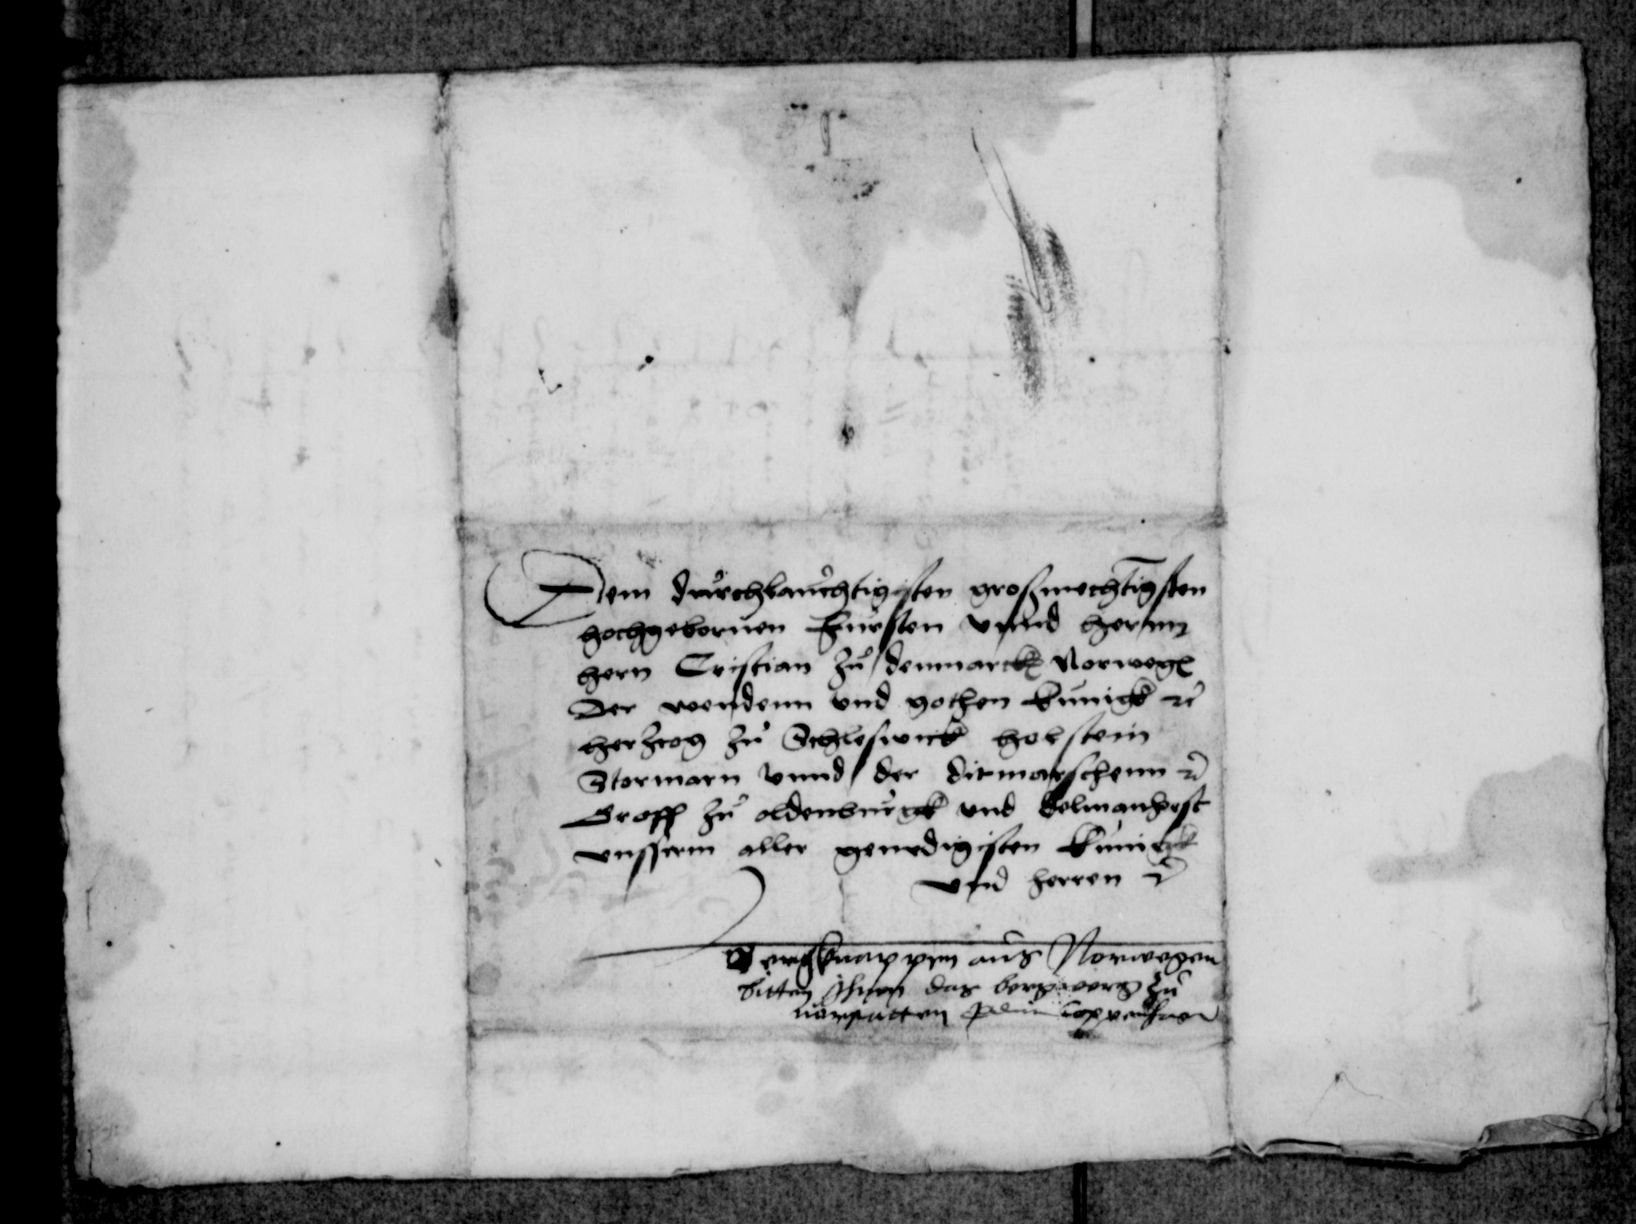 Dem durchlauchtigisten großmechtigsten
hochgebornen Fursten vnnd hernn
hern Cristian zu denmarck Norweg
Der wendenn vnd gothen kunigk etc
herzcog zu Schleswick holstein
Stormarn vnnd der ditmarschenn etc
Graff zu oldenburgk vnd delmanhrst
vnsserm aller genedigisten kunigk
vnd herren etc
Bergknappen aus Norwegen
bitten ihnen das bergwerg zu